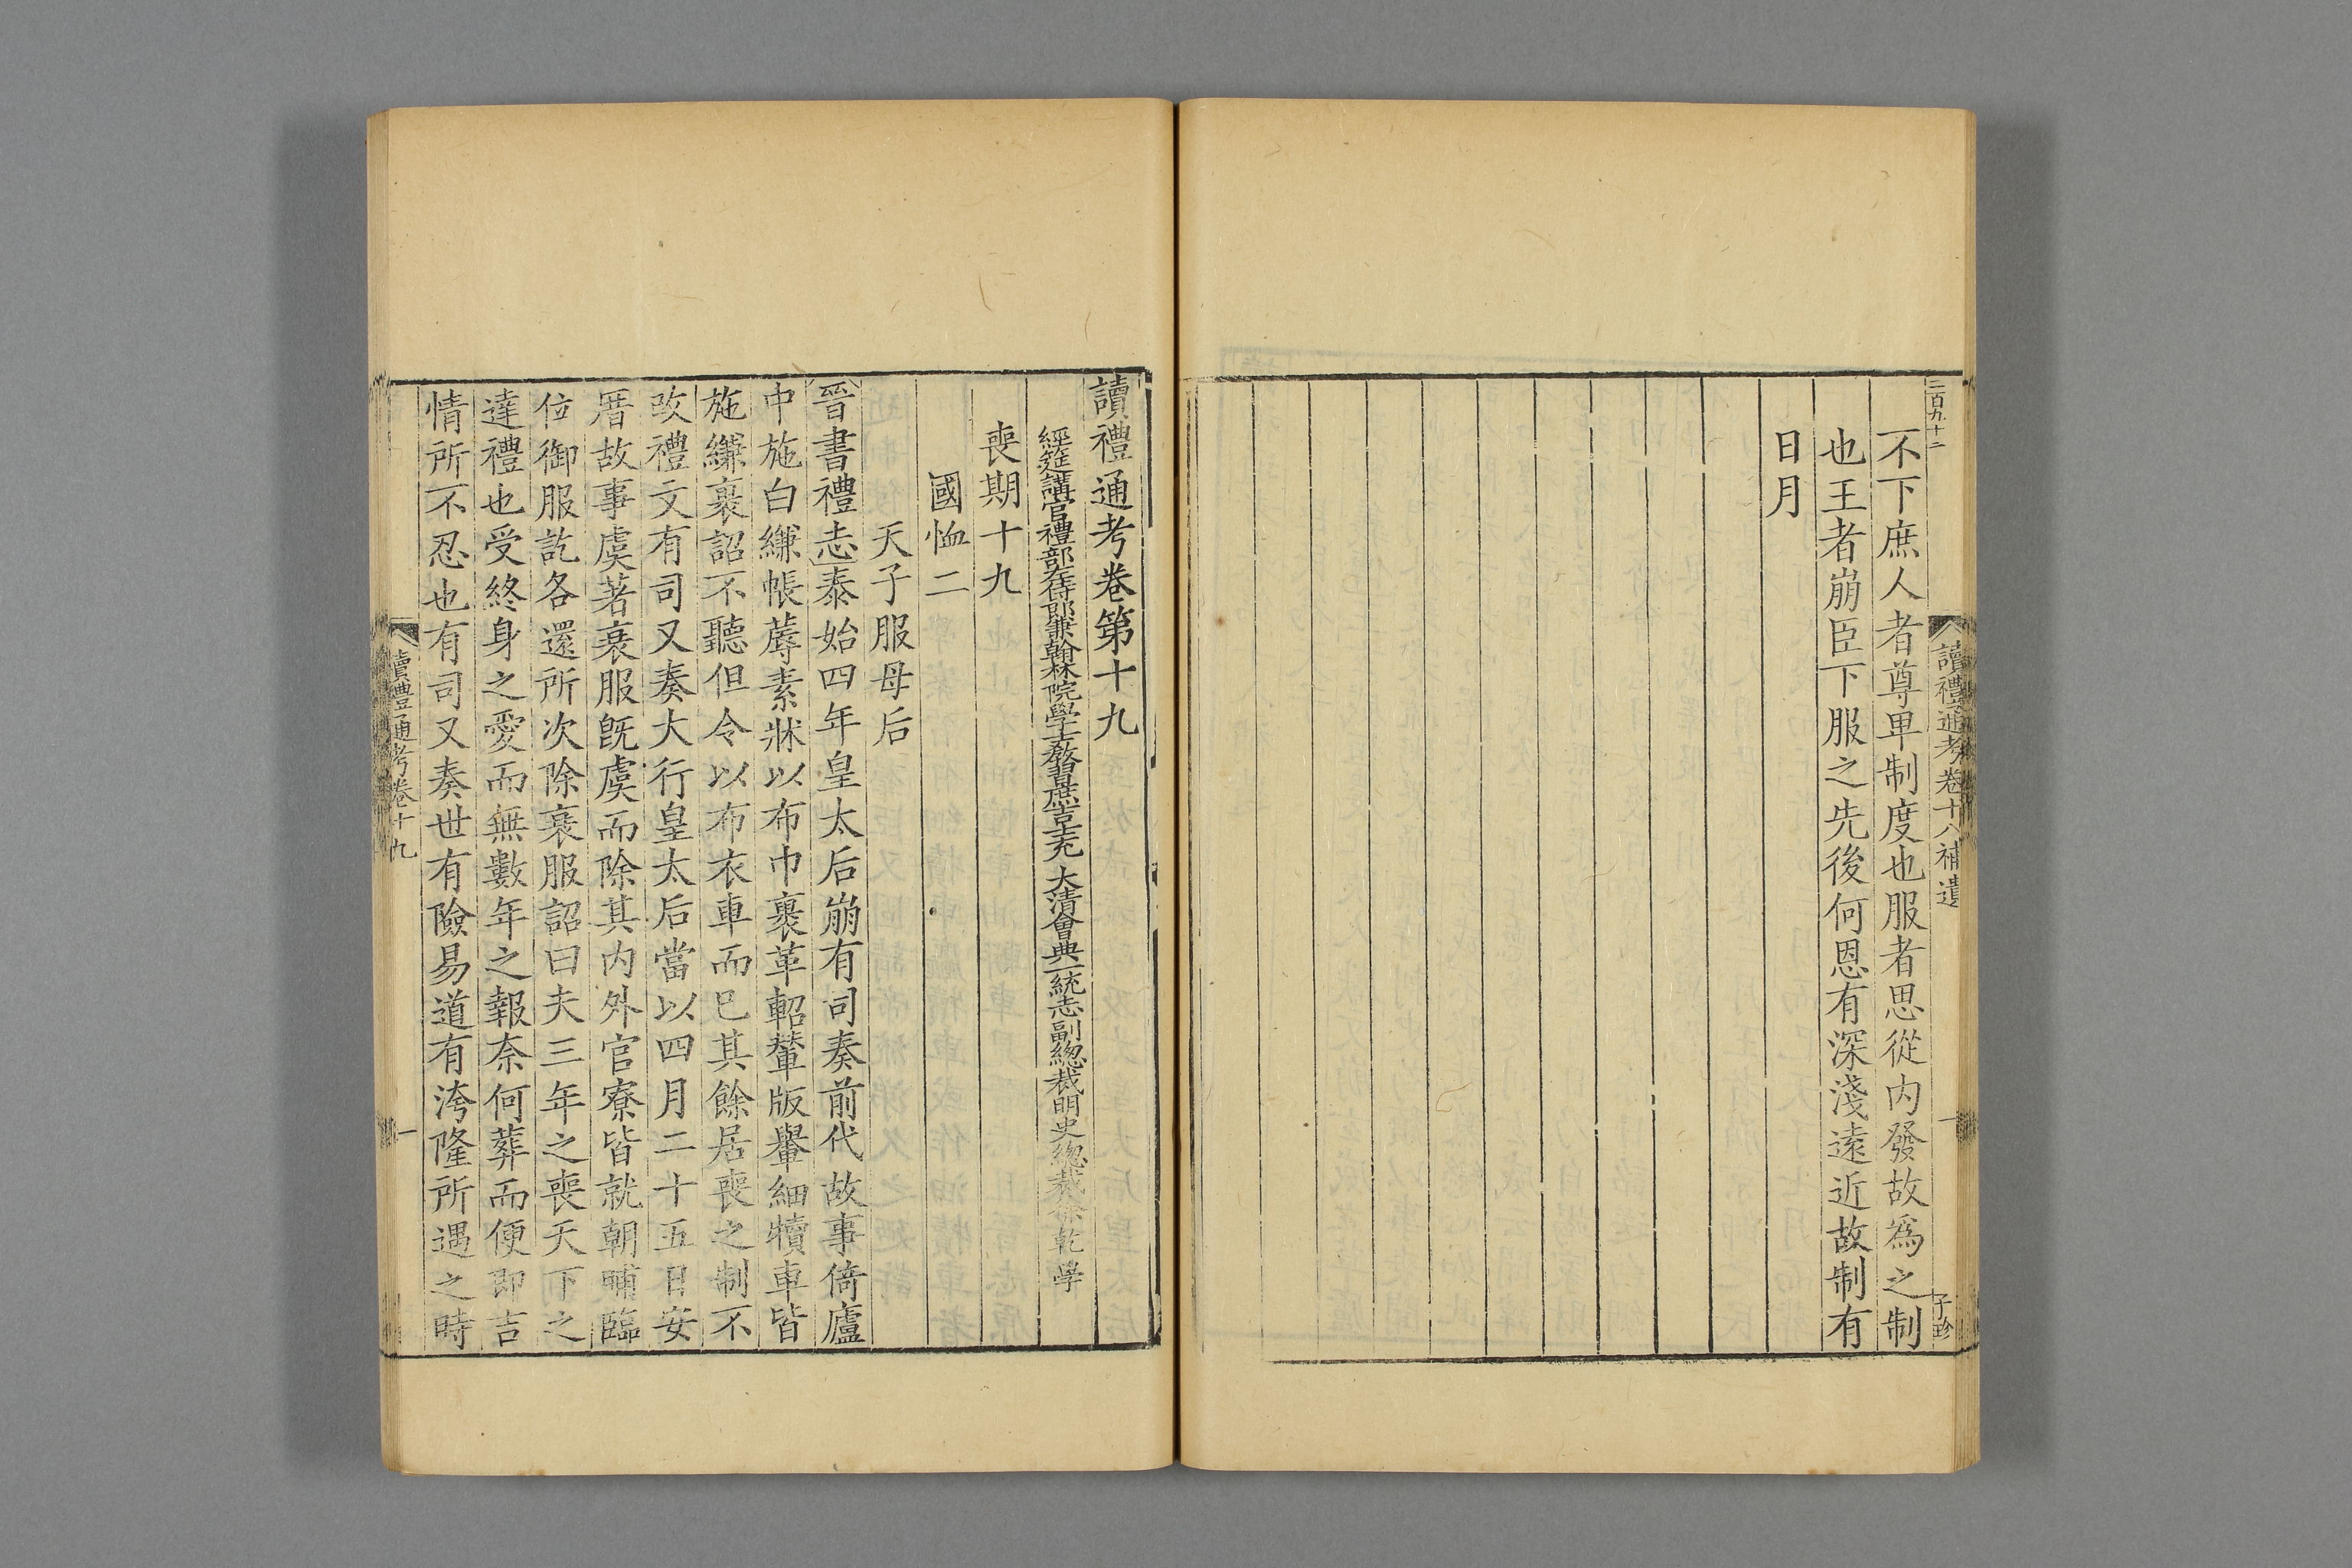 三百九十二
讀禮通考卷十八補遺
一
子珍
不下庶人者尊卑制度也服者思從内發故爲之制
也王者崩臣下服之先後何恩有深淺遠近故制有
日月
讀禮通考卷第十九
經筵講官禮部左侍郎兼翰林院學士敎習庶吉士充　大清會典一統志副總裁明史總裁徐乾學
喪期十九
國恤二
天子服母后
晉書禮志泰始四年皇太后崩有司奏前代故事倚廬
中施白縑帳蓐素牀以布巾裹革軺輦版轝細犢車皆
施縑裹詔不聽但令以布衣車而巳其餘居喪之制不
改禮文有司又奏大行皇太后當以四月二十五日安
厝故事虞著衰服旣虞而除其内外官寮皆就朝晡臨
位御服訖各還所次除衰服詔曰夫三年之喪天下之
達禮也受終身之愛而無數年之報奈何葬而便即吉
情所不忍也有司又奏世有險易道有洿隆所遇之時
讀禮通考卷十九
一